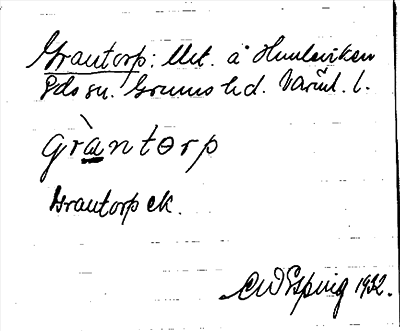 Grantorp: Utt. å Hunleviken
Eds sn. Grums hd. Värml. l.
gràntorp
Grantorp ck.
CW Espvig 1932.